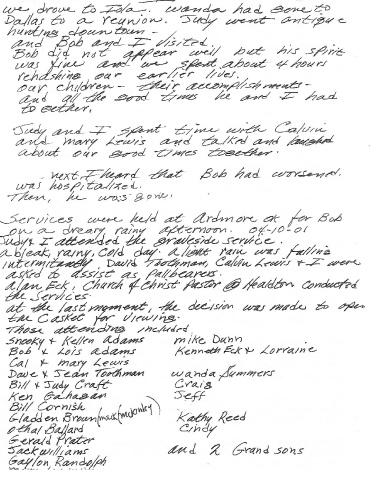 we drove to Ida. Wanda had gone to
Dallas to a reunion. Judy went antique
hunting downtown -
and Bob and I visited.
Bob did not appear well but his spirit
was fine and we spent about 4 hours
rehashing our earlier lives.
our children - their accomplishments -
and all the good times he and I had
together.
Judy and I spent time with Calvin
and Mary Lewis and talked and laughed
about our good times together.
next I heard that Bob had worsened.
was hospitalized.
Then, he was gone.
Services were held at Ardmore OK for Bob
on a dreary, rainy afternoon. 04-10-01
Judy & I attended the graveside service.
a bleak, rainy, cold day. a light rain was falling
intermitantly. David Toothman, Calvin Lewis & I were
asked to assist as pallbearers.
Alan Eck, Church of Christ Pastor @ Healdton conducted
the services
at the last moment, the decision was made to open
the Casket for viewing.
Those attending included,
Snooky & Kellen Adams mike Dunn
Bob & Lois adams Kenneth Eck & Lorraine
Cal & mary Lewis
Dave & Jean Toothman wanda Summers
Bill & Judy Craft Craig
Ken Gahagan Jeff
Bill Cornish
Gladden Brown Kathy Reed
othal Ballard Cindy
Gerald Prater
Jack williams and 2 Grandsons
Gaylon Randolph